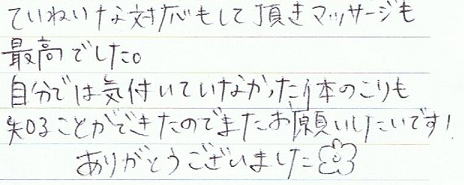 ていねいな対応もして頂きマッサージも
最高でした。
自分では気付いていなかった体のこりも
知ることができたのでまたお願いしたいです!
ありがとうございました